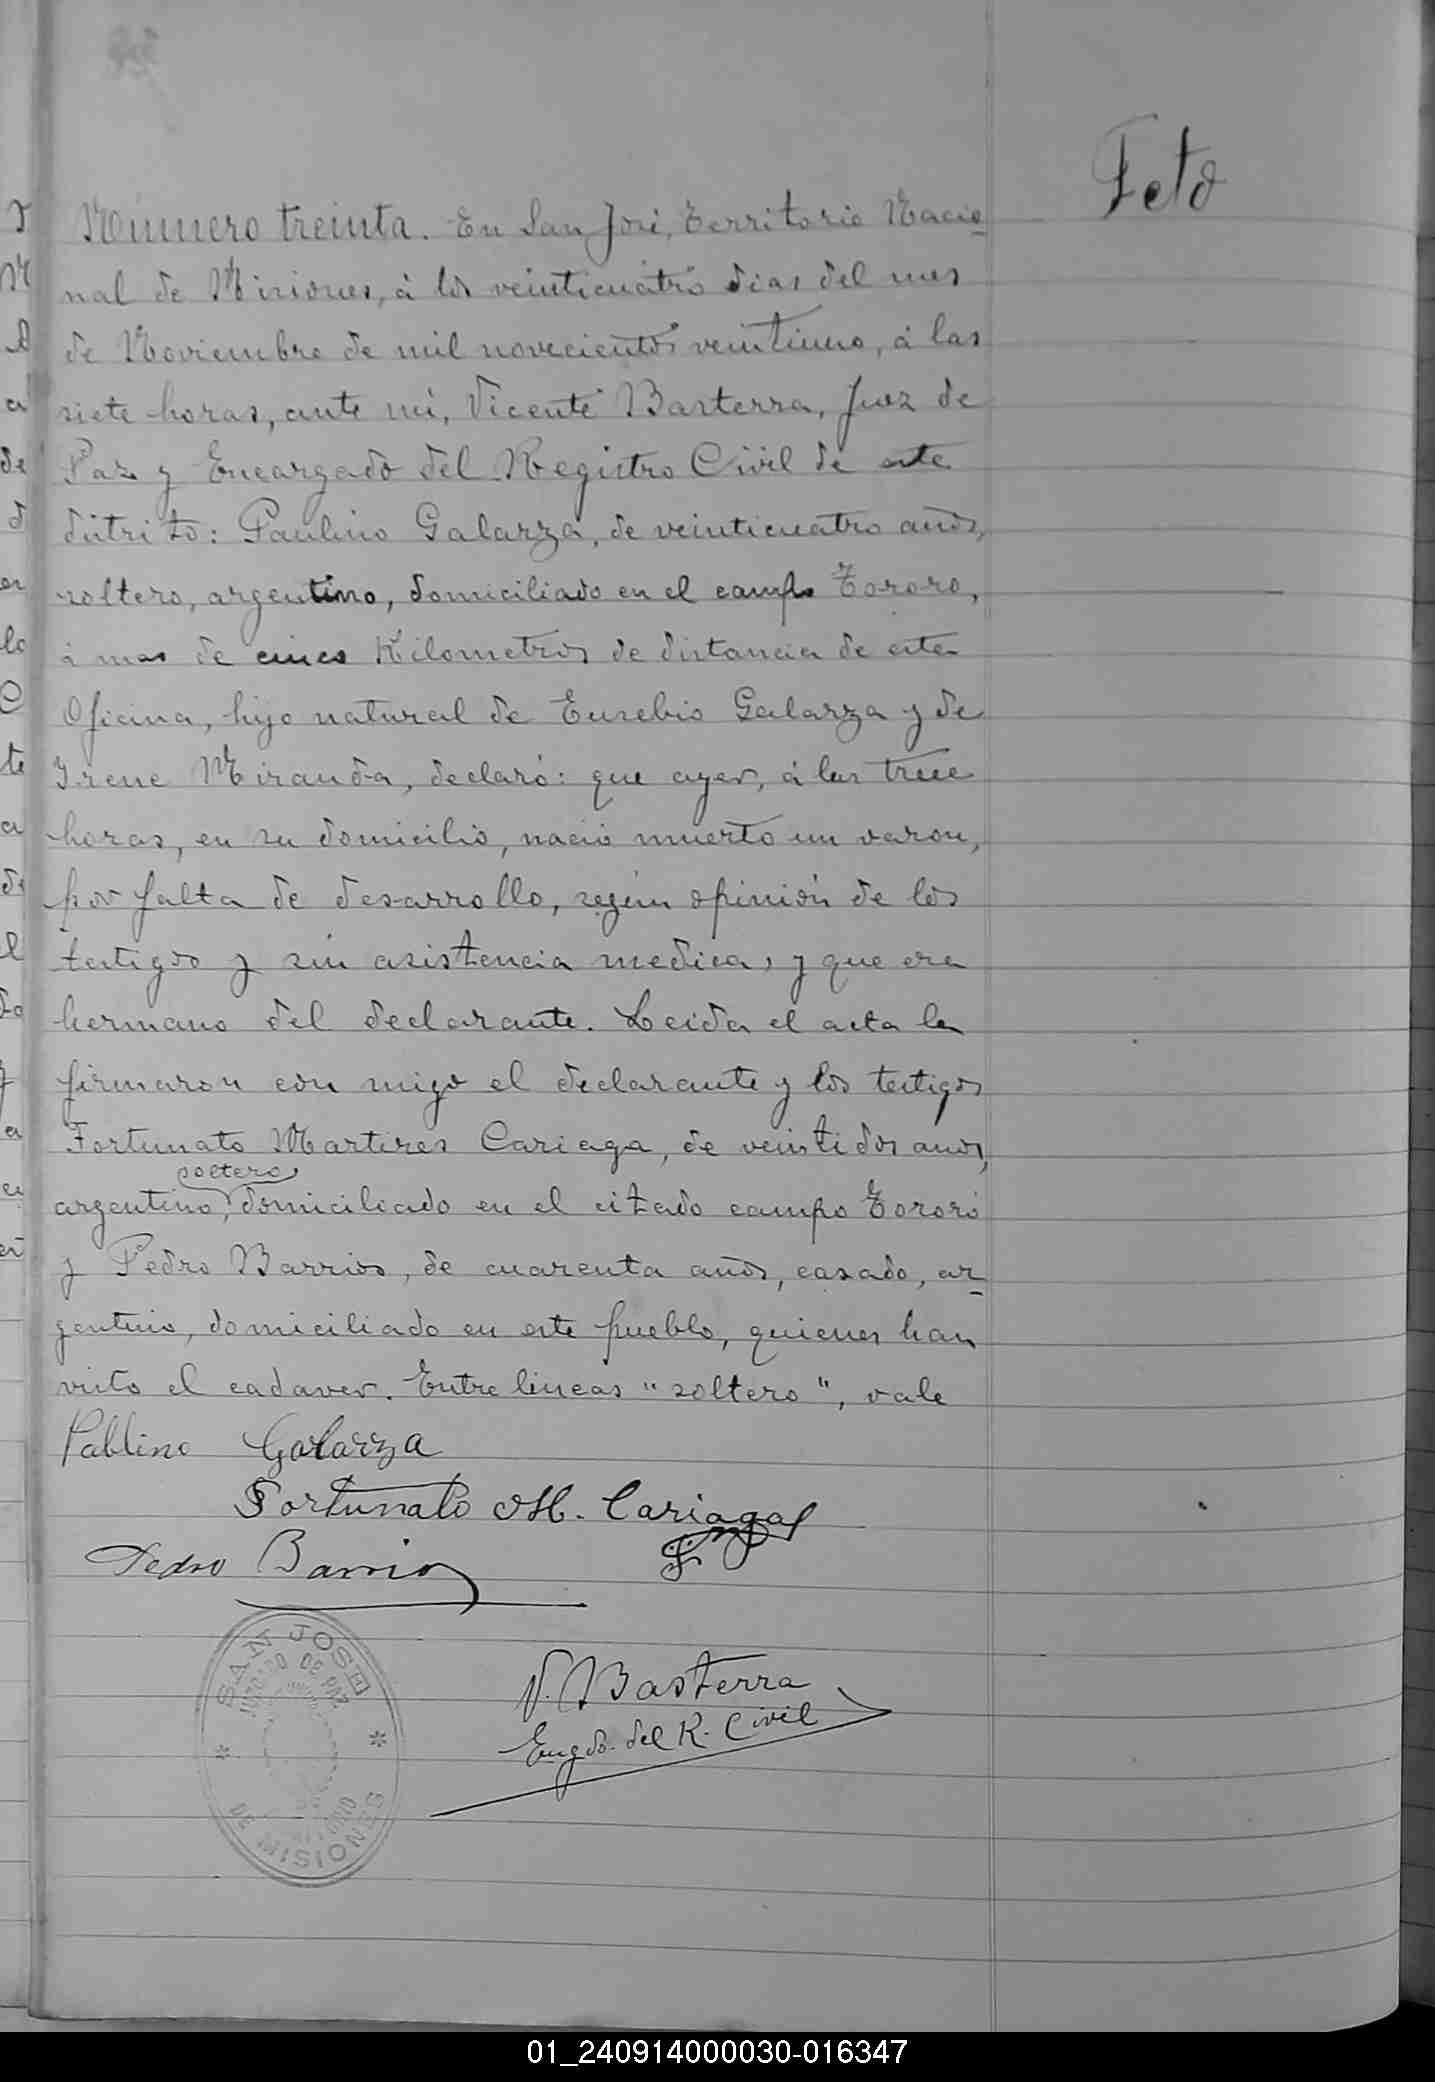 Feto
Número treinta. En San José, Territorio Nacio-
nal de Misiones, á los veinticuatro dias del mes
de Noviembre de mil novecientos veintiuno, á las
siete horas, ante mi, Vicente Basterra, Juez de
Paz y Encargado del Registro Civil de este
distrito: Paulino Galarza, de veinticuatro años,
soltero, argentino, domiciliado en el campo Tororo,
á mas de cinco Kilometros de distancia de esta
Oficina, hijo natural de Eusebio Galarza y de
Irene Miranda, declaró: que ayer, á las trece
horas, en su domicilio, nació muerto un varon,
por falta de desarrollo, segun opinión de los
testigos y sin asistencia medica, y que era
hermano del declarante. Leida el acta la
firmaron con migo el declarante y los testigos
Fortunato Martires Cariaga, de veintidos anos,
soltero
argentino, domiciliado en el citado campo Tororó
y Pedro Barrios, de cuarenta años, casado, ar-
gentino, domiciliado en este pueblo, quienes han
visto el cadaver. Entre lineas "soltero", vale
Pablino Galarza
Fortunato M. Cariaga
Pedro Barrios
SAN JOSE
JUZGADO DE PAZ
V. Basterra
Engdo. del R. Civil
TERRITORIO
DE MISIONES
01_240914000030-016347